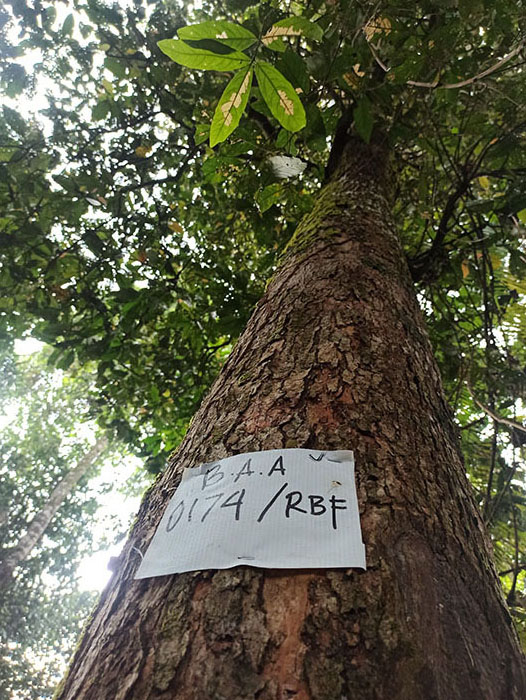 B.A.A
0174/RBF